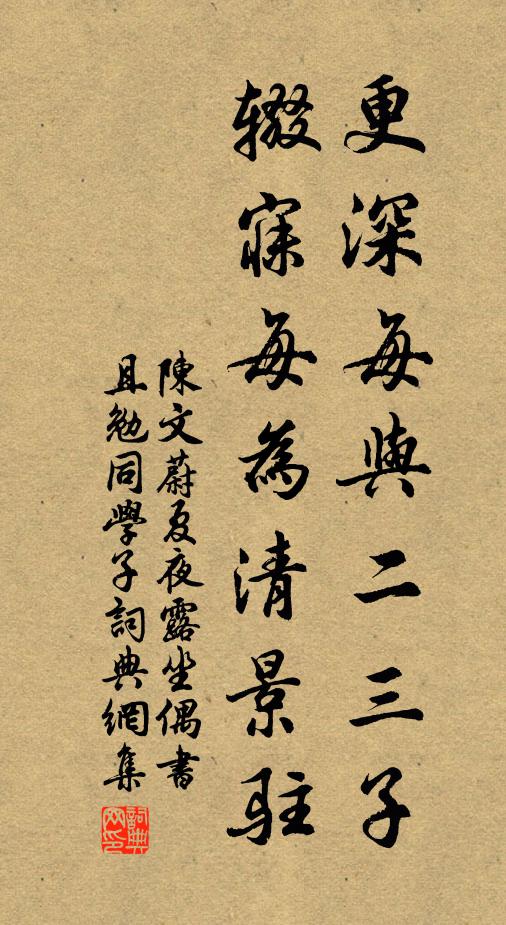 更深每與二三子
輟寐每為清景駐
陳文蔚夏夜露坐偶書
且勉同學子詞典網集
詞典
网印